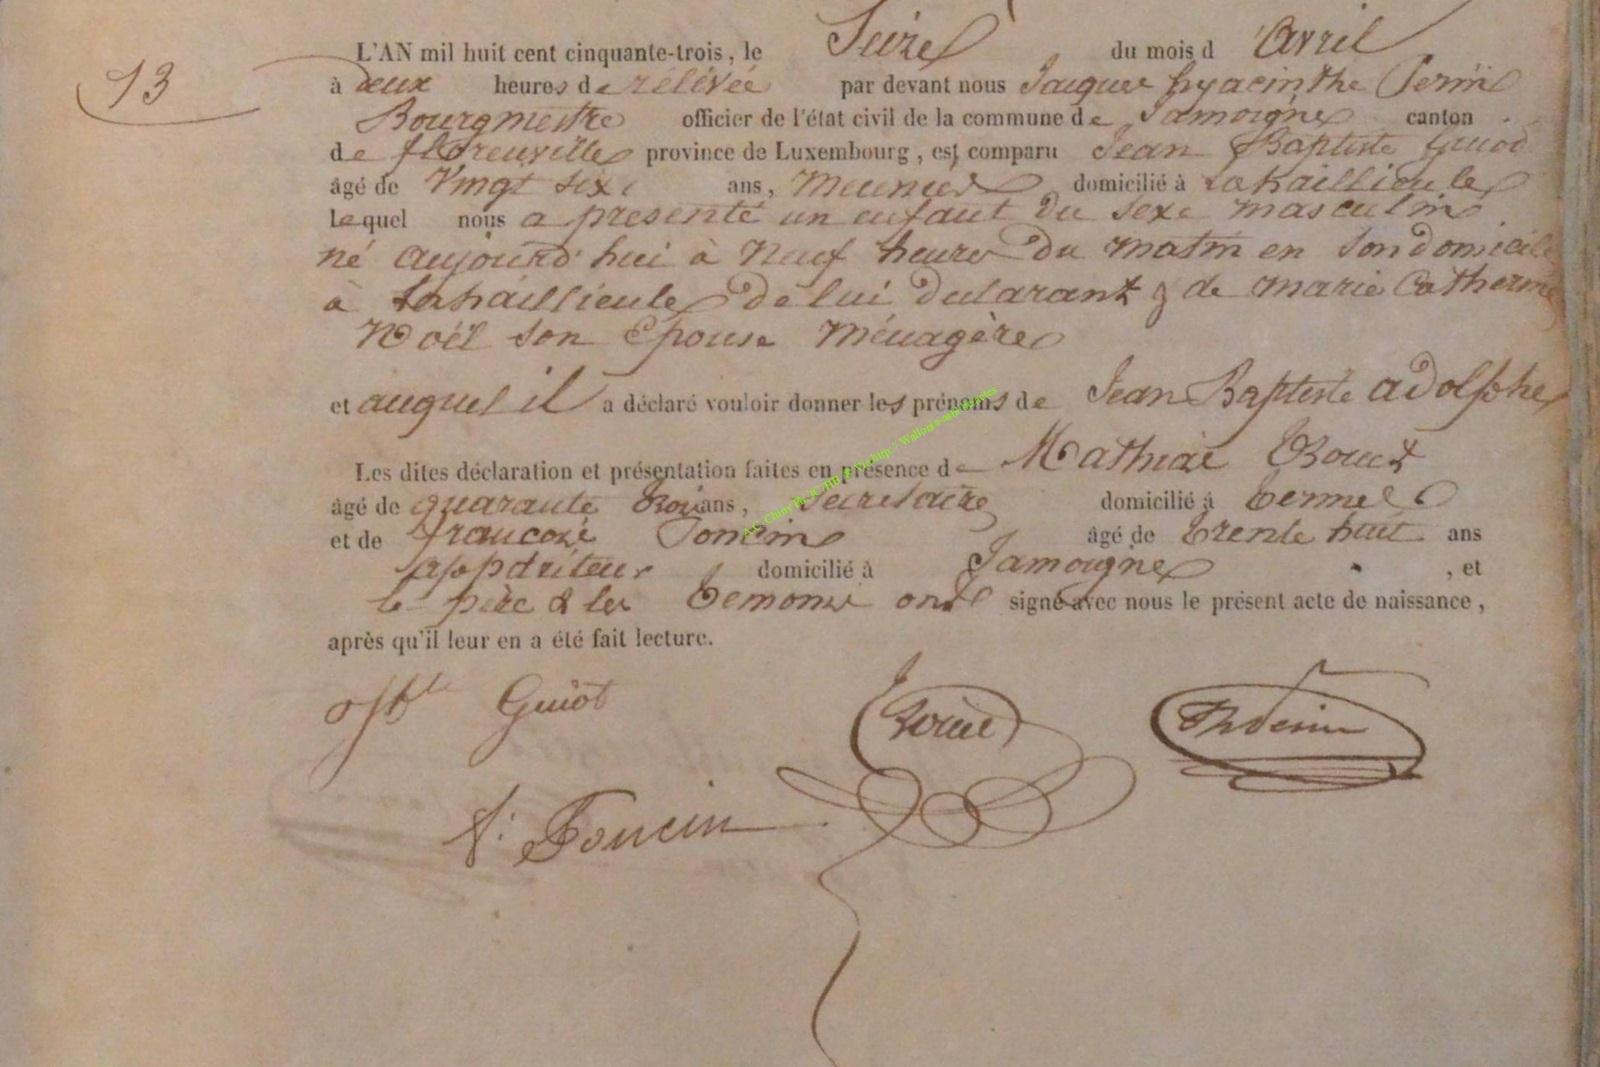 13
L'AN mil huit cent cinquante-trois, le Seize du mois d'Avril
à deux heures de rélévée par devant nous Jacques hyacinthe
Bourgmestre officier de l'état civil de la commune de Jamoigne canton
de florenville province de Luxembourg, est comparu Jean Baptiste Guiot
âgé de vingt six ans, Meunier domicilié à Lahaillieule
lequel nous a présenté un enfant du sexe masculin
né aujourd'hui à Neuf heures du matin en son domicile
à Lahaillieule de lui déclarant & de marie Catherine
Noël son Epouse Ménagère
et auquel il a déclaré vouloir donner les prénoms de Jean Baptiste adolphe
Les dites déclaration et présentation faites en présence de Mathias
âgé de quarante trois ans, secrétaire domicilié à termes
et de françois Poncin âgé de trente huit ans
appariteur domicilié à Jamoigne, et
le père & les temoins ont signé avec nous le présent acte de naissance,
après qu'il leur en a été fait lecture.
Guiot
f: Poncin